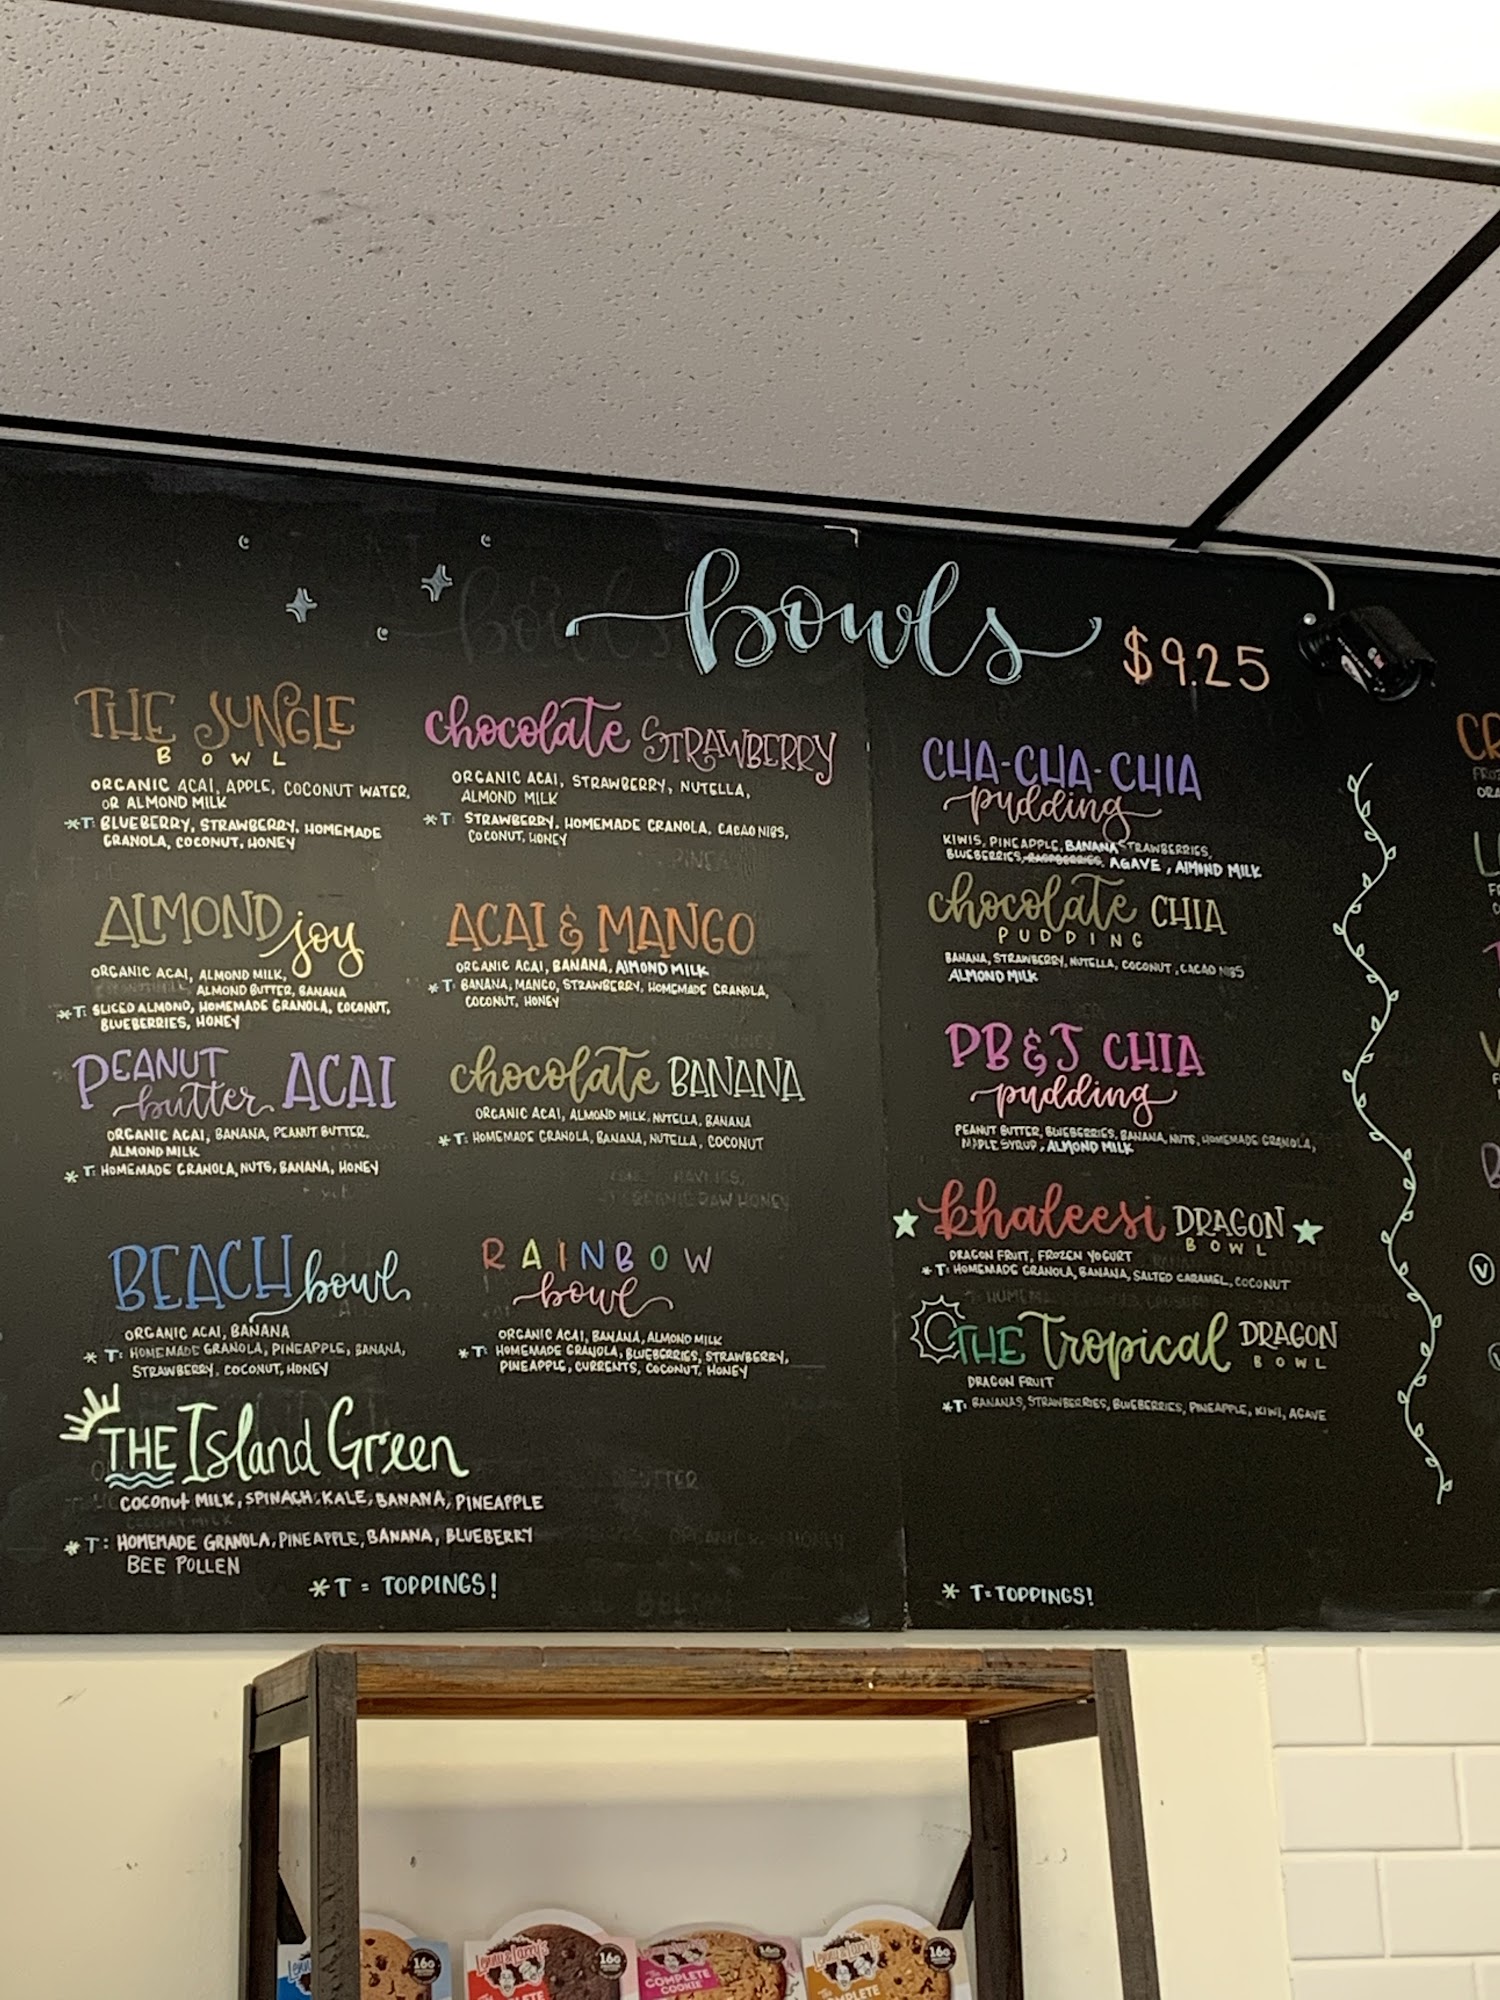 bowls $9.25
THE JUNGLE
BOWL
ORGANIC ACAI, APPLE, COCONUT WATER,
OR ALMOND MILK
*T: BLUEBERRY, STRAWBERRY, HOMEMADE
GRANOLA, COCONUT, HONEY
ALMOND joy
ORGANIC ACAI, ALMOND MILK,
ALMOND BUTTER, BANANA
*T: SLICED ALMOND, HOMEMADE GRANOLA, COCONUT,
BLUEBERRIES, HONEY
PEANUT
butter ACAI
ORGANIC ACAI, BANANA, PEANUT BUTTER,
ALMOND MILK
*T: HOMEMADE GRANOLA, NUTS, BANANA, HONEY
BEACH bowl
ORGANIC ACAI, BANANA
*T: HOMEMADE GRANOLA, PINEAPPLE, BANANA,
STRAWBERRY, COCONUT, HONEY
THE Island Green
COCONUT MILK, SPINACH, KALE, BANANA, PINEAPPLE
*T: HOMEMADE GRANOLA, PINEAPPLE, BANANA, BLUEBERRY
BEE POLLEN
*T = TOPPINGS!
chocolate STRAWBERRY
ORGANIC ACAI, STRAWBERRY, NUTELLA,
ALMOND MILK
*T: STRAWBERRY, HOMEMADE GRANOLA, CACAO NIBS,
COCONUT, HONEY
ACAI & MANGO
ORGANIC ACAI, BANANA, ALMOND MILK
*T: BANANA, MANGO, STRAWBERRY, HOMEMADE GRANOLA,
COCONUT, HONEY
chocolate BANANA
ORGANIC ACAI, ALMOND MILK, NUTELLA, BANANA
*T: HOMEMADE GRANOLA, BANANA, NUTELLA, COCONUT
RAINBOW
bowl
ORGANIC ACAI, BANANA, ALMOND MILK
*T: HOMEMADE GRANOLA, BLUEBERRIES, STRAWBERRY,
PINEAPPLE, CURRENTS, COCONUT, HONEY
CHA-CHA-CHIA
pudding
KIWIS, PINEAPPLE, BANANA STRAWBERRIES,
BLUEBERRIES, RASPBERRIES, AGAVE, ALMOND MILK
chocolate CHIA
PUDDING
BANANA, STRAWBERRY, NUTELLA, COCONUT, CACAO NIBS
ALMOND MILK
PB & J CHIA
pudding
PEANUT BUTTER, BLUEBERRIES, BANANA, NUTS, HOMEMADE GRANOLA,
MAPLE SYRUP, ALMOND MILK
khaleesi DRAGON
BOWL
DRAGON FRUIT, FROZEN YOGURT
*T: HOMEMADE GRANOLA, BANANA, SALTED CARAMEL, COCONUT
THE Tropical DRAGON
BOWL
DRAGON FRUIT
*T: BANANAS, STRAWBERRIES, BLUEBERRIES, PINEAPPLE, KIWI, AGAVE
* T=TOPPINGS!
Lenny & Larry's
16g
Lenny & Larry's
16g
COMPLETE
COOKIE
16g
Lenny & Larry's
16g